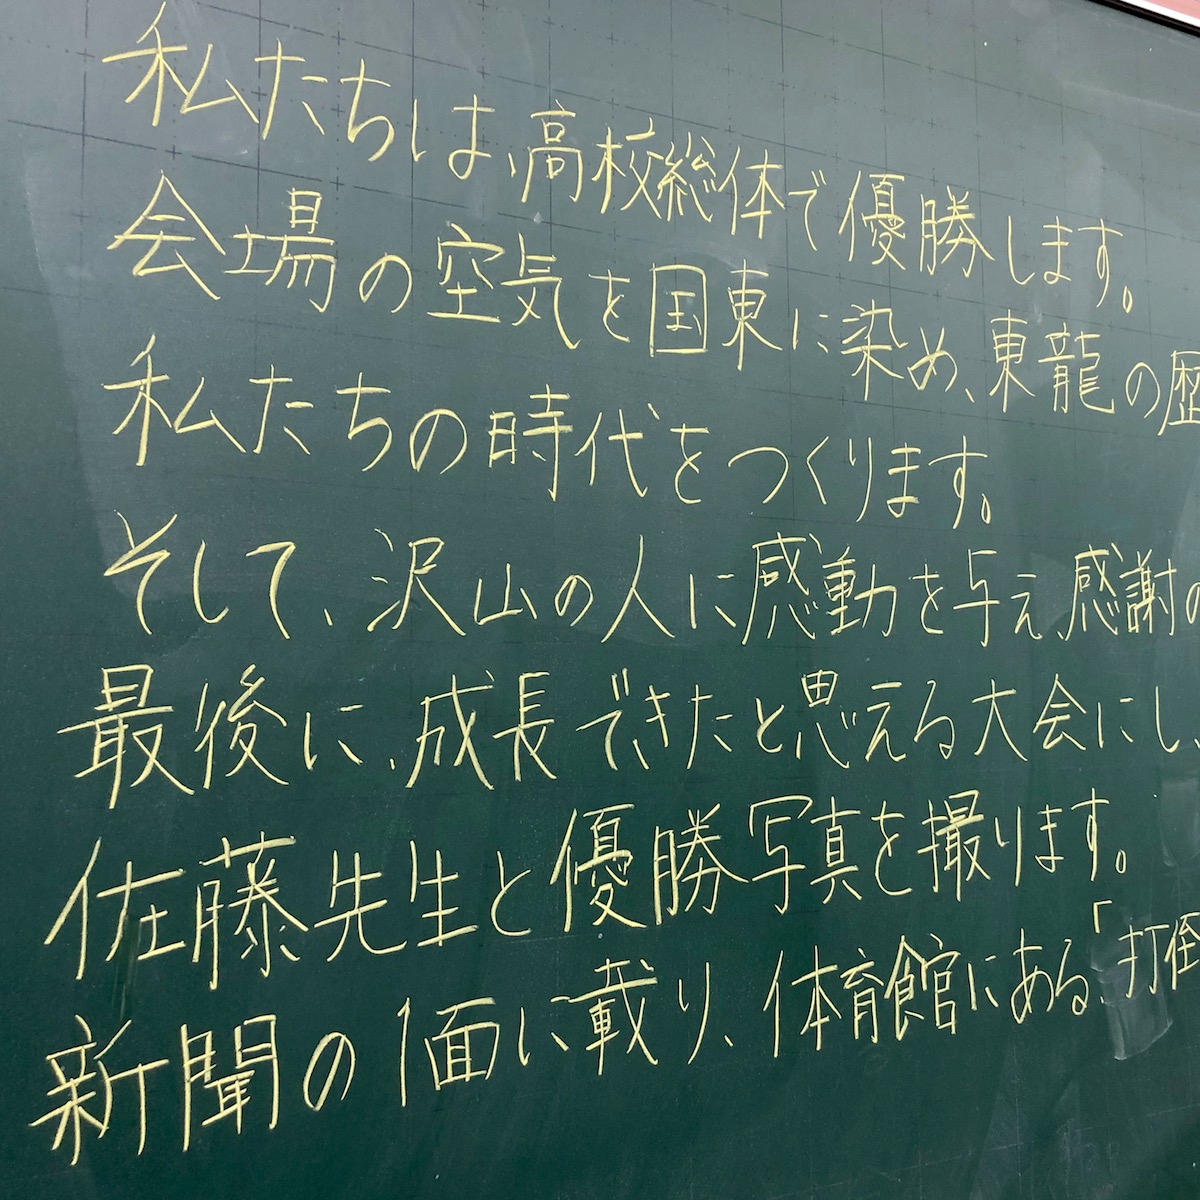 私たちは、高校総体で優勝します。
会場の空気を国東に染め、東龍の歴
私たちの時代をつくります。
そして、沢山の人に感動を与え、感謝の
最後に、成長できたと思える大会にし、
佐藤先生と優勝写真を撮ります。
新聞の1面に載り、体育館にある「打倒